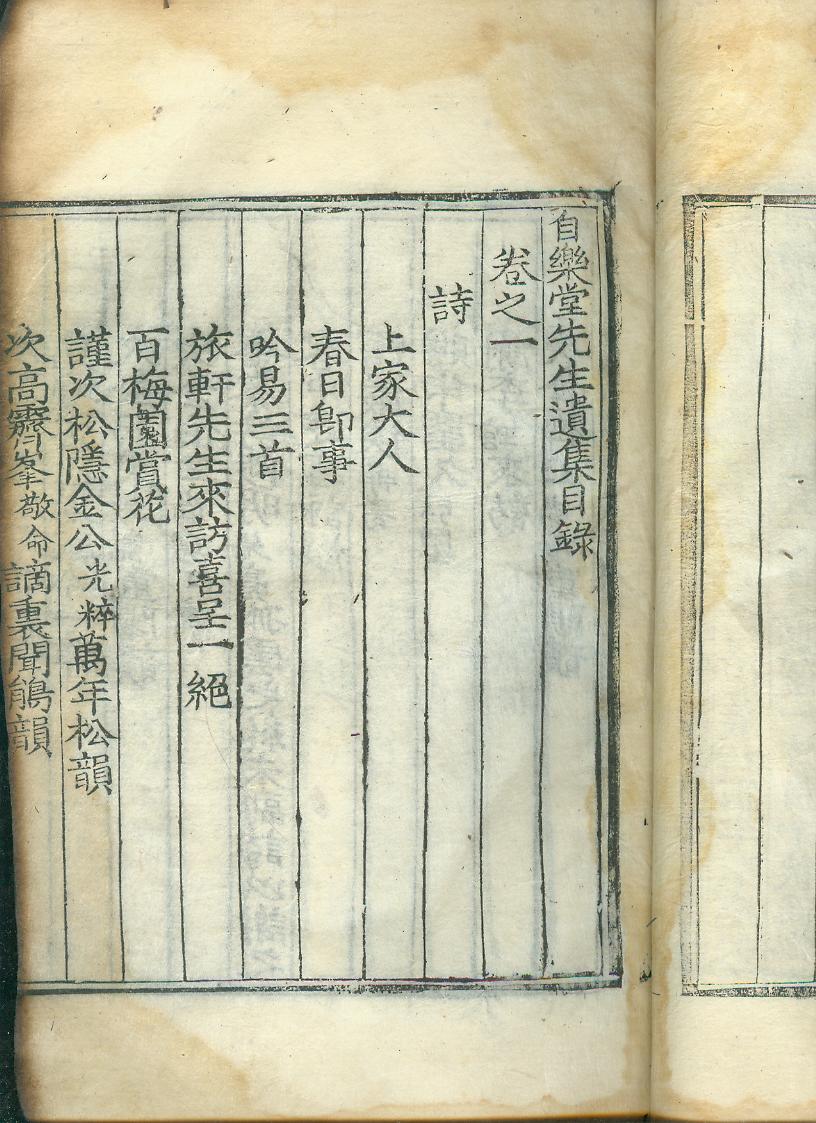 自樂堂先生遺集目錄
卷之一
詩
上家大人
春日卽事
吟易三首
旅軒先生來訪喜呈一絕
百梅園賞花
謹次松隱金公光粹萬年松韻
次高霽峯敬命謫裏聞鵑韻